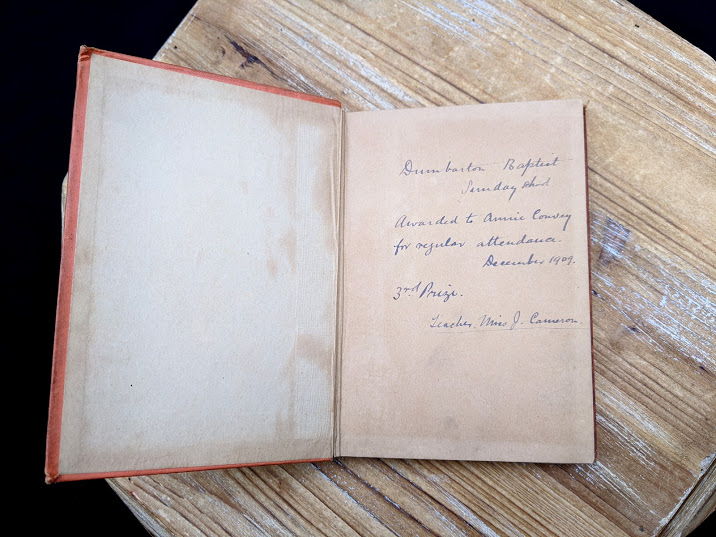 Dumbarton Baptist
Sunday School
Awarded to Annie Conway
for regular attendance.
December 1909.
3rd Prize.
Teacher, Miss J. Cameron.